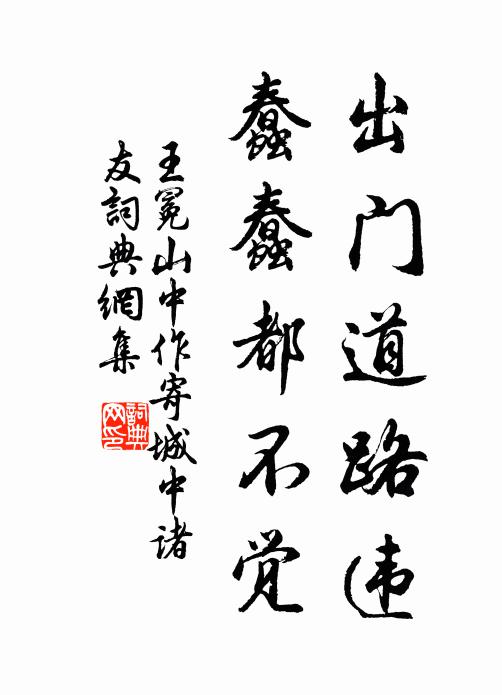 出门道路违
蠢蠢都不觉
王冕山中作寄城中诸
友詞典網集
詞典網印